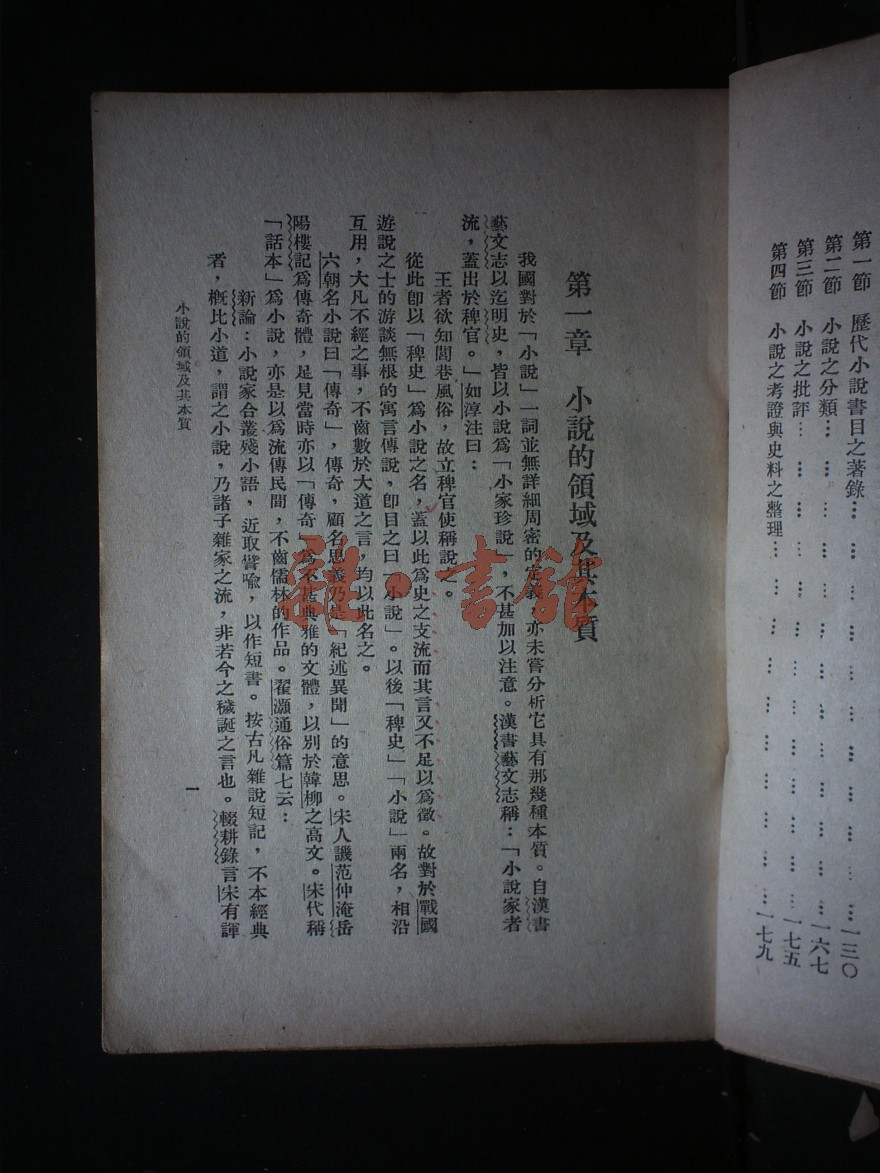 第一節　歷代小說書目之著錄… … … … … … … …一三〇
第二節　小說之分類… … … … … … … … … …一六七
第三節　小說之批評… … … … … … … … … …一七五
第四節　小說之考證與史料之整理… … … … … … …一七九
第一章　小說的領域及其本質
我國對於「小說」一詞並無詳細周密的定義，亦未嘗分析它具有那幾種本質。自漢書
藝文志以迄明史，皆以小說為「小家珍說」，不甚加以注意。漢書藝文志稱：「小說家者
流，蓋出於稗官。」如淳注曰：
王者欲知閭巷風俗，故立稗官使稱說之。
從此卽以「稗史」為小說之名，蓋以此為史之支流而其言又不足以為徵。故對於戰國
遊說之士的游談無根的寓言傳說，卽目之曰「小說」。以後「稗史」「小說」兩名，相沿
互用，大凡不經之事，不齒數於大道之言，均以此名之。
六朝名小說曰「傳奇」，傳奇，顧名思義乃是「紀述異聞」的意思。宋人譏范仲淹岳
陽樓記為傳奇體，足見當時亦以「傳奇」為不甚典雅的文體，以別於韓柳之高文。宋代稱
「話本」為小說，亦是以為流傳民間，不齒儒林的作品。翟灝通俗篇七云：
新論：小說家合叢殘小語，近取譬喻，以作短書。按古凡雜說短記，不本經典
者，槪比小道，謂之小說，乃諸子雜家之流，非若今之穢誕之言也。輟耕錄言宋有諢
小說的領域及其本質
一
雜·書館